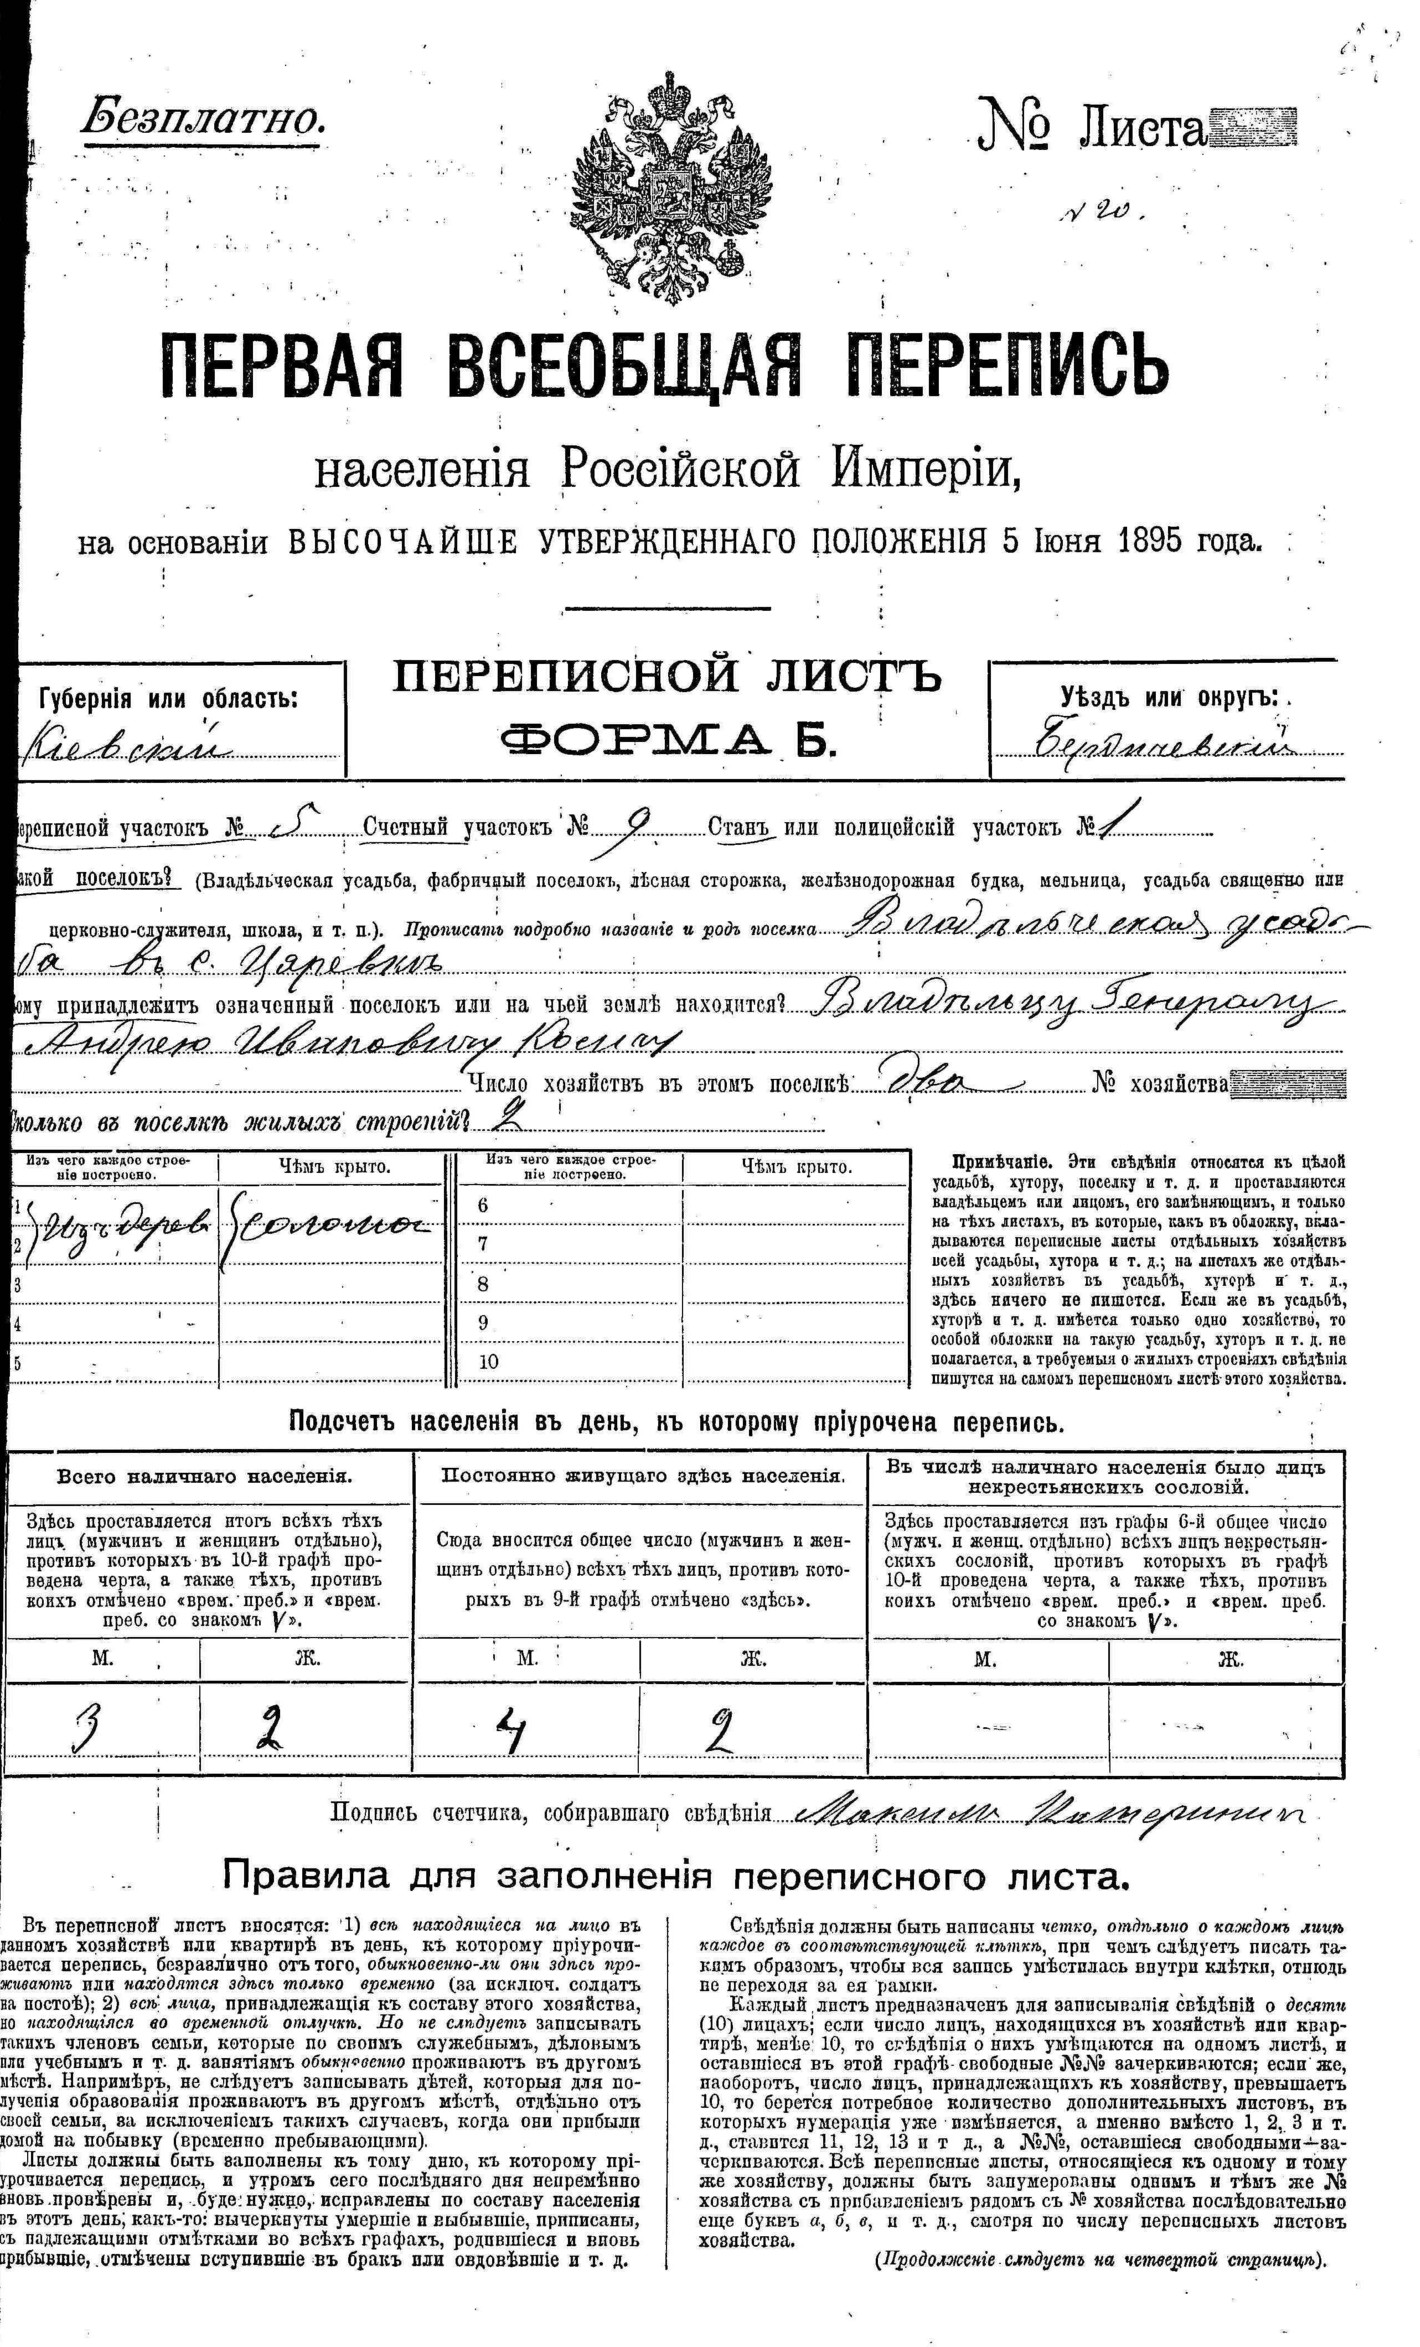 Безплатно.
№ Листа
№ 20.
ПЕРВАЯ ВСЕОБЩАЯ ПЕРЕПИСЬ
населенія Россійской Имперіи,
на основаніи ВЫСОЧАЙШЕ УТВЕРЖДЕННАГО ПОЛОЖЕНІЯ 5 Іюня 1895 года.
ПЕРЕПИСНОЙ ЛИСТЪ
ФОРМА Б.
Губернія или область:
Кіевскій
Уѣздъ или округъ:
Бердичевскій
ереписной участокъ № 5 Счетный участокъ № 9 Станъ или полицейскій участокъ № 1
акой поселокъ? (Владѣльческая усадьба, фабричный поселокъ, лѣсная сторожка, желѣзнодорожная будка, мельница, усадьба священно или
церковно-служителя, школа, и т. п.). Прописать подробно названіе и родъ поселка Владѣльческая усадь-
ба въ с. Царевкѣ
ому принадлежитъ означенный поселокъ или на чьей землѣ находится? Владѣльцу Генералу
Андрею Ивановичу Косичу
Число хозяйствъ въ этомъ поселкѣ: два № хозяйства
колько въ поселкѣ жилыхъ строеній? 2
Изъ чего каждое строе-
ніе построено.
Чѣмъ крыто.
Изъ чего каждое строе-
ніе построено.
Чѣмъ крыто.
1
2
Изъ дерев
солома
3
4
5
6
7
8
9
10
Примѣчаніе. Эти свѣдѣнія относятся къ цѣлой
усадьбѣ, хутору, поселку и т. д. и проставляются
владѣльцемъ или лицомъ, его замѣняющимъ, и только
на тѣхъ листахъ, въ которые, какъ въ обложку, вкла-
дываются переписные листы отдѣльныхъ хозяйствъ
всей усадьбы, хутора и т. д.; на листахъ же отдѣль-
ныхъ хозяйствъ въ усадьбѣ, хуторѣ и т. д.,
здѣсь ничего не пишется. Если же въ усадьбѣ,
хуторѣ и т. д. имѣется только одно хозяйство, то
особой обложки на такую усадьбу, хуторъ и т. д. не
полагается, а требуемыя о жилыхъ строеніяхъ свѣдѣнія
пишутся на самомъ переписномъ листѣ этого хозяйства.
Подсчетъ населенія въ день, къ которому пріурочена перепись.
Всего наличнаго населенія.
Здѣсь проставляется итогъ всѣхъ тѣхъ
лицъ (мужчинъ и женщинъ отдѣльно),
противъ которыхъ въ 10-й графѣ про-
ведена черта, а также тѣхъ, противъ
коихъ отмѣчено «врем. преб.» и «врем.
преб. со знакомъ V».
Постоянно живущаго здѣсь населенія.
Сюда вносится общее число (мужчинъ и жен-
щинъ отдѣльно) всѣхъ тѣхъ лицъ, противъ кото-
рыхъ въ 9-й графѣ отмѣчено «здѣсь».
Въ числѣ наличнаго населенія было лицъ
некрестьянскихъ сословій.
Здѣсь проставляется изъ графы 6-й общее число
(мужч. и женщ. отдѣльно) всѣхъ лицъ некрестьян-
скихъ сословій, противъ которыхъ въ графѣ
10-й проведена черта, а также тѣхъ, противъ
коихъ отмѣчено «врем. преб.» и «врем. преб.
со знакомъ V».
М. Ж. М. Ж. М. Ж.
3 2 4 2 — —
Подпись счетчика, собиравшаго свѣдѣнія Максимъ
Правила для заполненія переписного листа.
Въ переписной листъ вносятся: 1) всѣ находящіеся на лицо въ
данномъ хозяйствѣ или квартирѣ въ день, къ которому пріурочи-
вается перепись, безразлично отъ того, обыкновенно-ли они здѣсь про-
живаютъ или находятся здѣсь только временно (за исключ. солдатъ
на постоѣ); 2) всѣ лица, принадлежащія къ составу этого хозяйства,
но находящіяся во временной отлучкѣ. Но не слѣдуетъ записывать
такихъ членовъ семьи, которые по своимъ служебнымъ, дѣловымъ
или учебнымъ и т. д. занятіямъ обыкновенно проживаютъ въ другомъ
мѣстѣ. Напримѣръ, не слѣдуетъ записывать дѣтей, которыя для по-
лученія образованія проживаютъ въ другомъ мѣстѣ, отдѣльно отъ
своей семьи, за исключеніемъ такихъ случаевъ, когда они прибыли
домой на побывку (временно пребывающими).
Листы должны быть заполнены къ тому дню, къ которому прі-
урочивается перепись, и утромъ сего послѣдняго дня непремѣнно
вновь провѣрены и, буде нужно, исправлены по составу населенія
въ этотъ день, какъ-то: вычеркнуты умершіе и выбывшіе, приписаны,
съ надлежащими отмѣтками во всѣхъ графахъ, родившіеся и вновь
прибывшіе, отмѣчены вступившіе въ бракъ или овдовѣвшіе и т. д.
Свѣдѣнія должны быть написаны четко, отдѣльно о каждомъ лицѣ
каждое въ соотвѣтствующей клѣткѣ, при чемъ слѣдуетъ писать та-
кимъ образомъ, чтобы вся запись умѣстилась внутри клѣтки, отнюдь
не переходя за ея рамки.
Каждый листъ предназначенъ для записыванія свѣдѣній о десяти
(10) лицахъ; если число лицъ, находящихся въ хозяйствѣ или квар-
тирѣ, менѣе 10, то свѣдѣнія о нихъ умѣщаются на одномъ листѣ, и
оставшіеся въ этой графѣ свободные №№ зачеркиваются; если же,
наоборотъ, число лицъ, принадлежащихъ къ хозяйству, превышаетъ
10, то берется потребное количество дополнительныхъ листовъ, въ
которыхъ нумерація уже измѣняется, а именно вмѣсто 1, 2, 3 и т.
д., ставится 11, 12, 13 и т д., а №№, оставшіеся свободными—за-
черкиваются. Всѣ переписные листы, относящіеся къ одному и тому
же хозяйству, должны быть занумерованы однимъ и тѣмъ же №
хозяйства съ прибавленіемъ рядомъ съ № хозяйства послѣдовательно
еще буквъ а, б, в, и т. д., смотря по числу переписныхъ листовъ
хозяйства.
(Продолженіе слѣдуетъ на четвертой страницѣ).